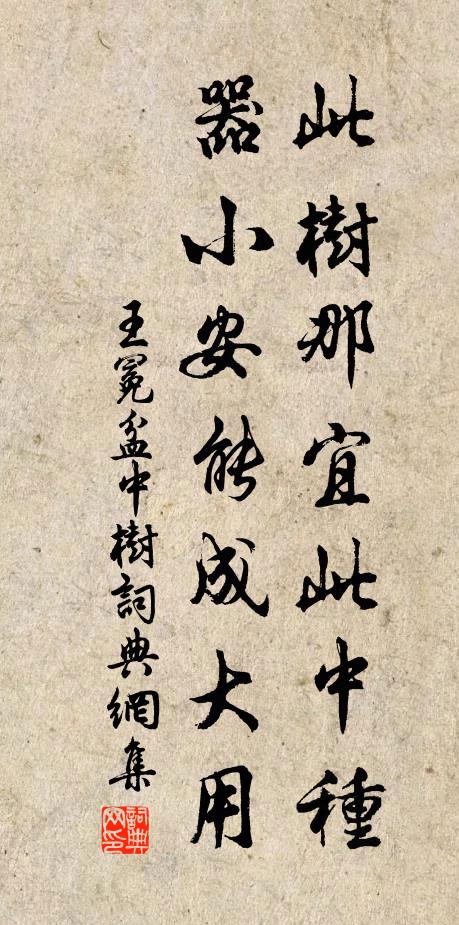 此樹那宜此中種
器小安能成大用
王冕盆中樹詞典網集
詞典
网印